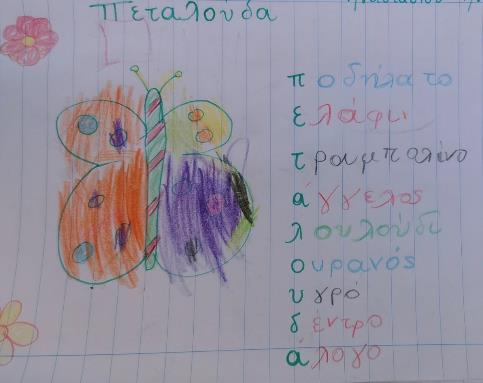 Πεταλούδα
ποδήλατο
ελάφι
τραμπολίνο
άγγελος
λουλούδι
ουρανός
υγρό
δέντρο
άλογο